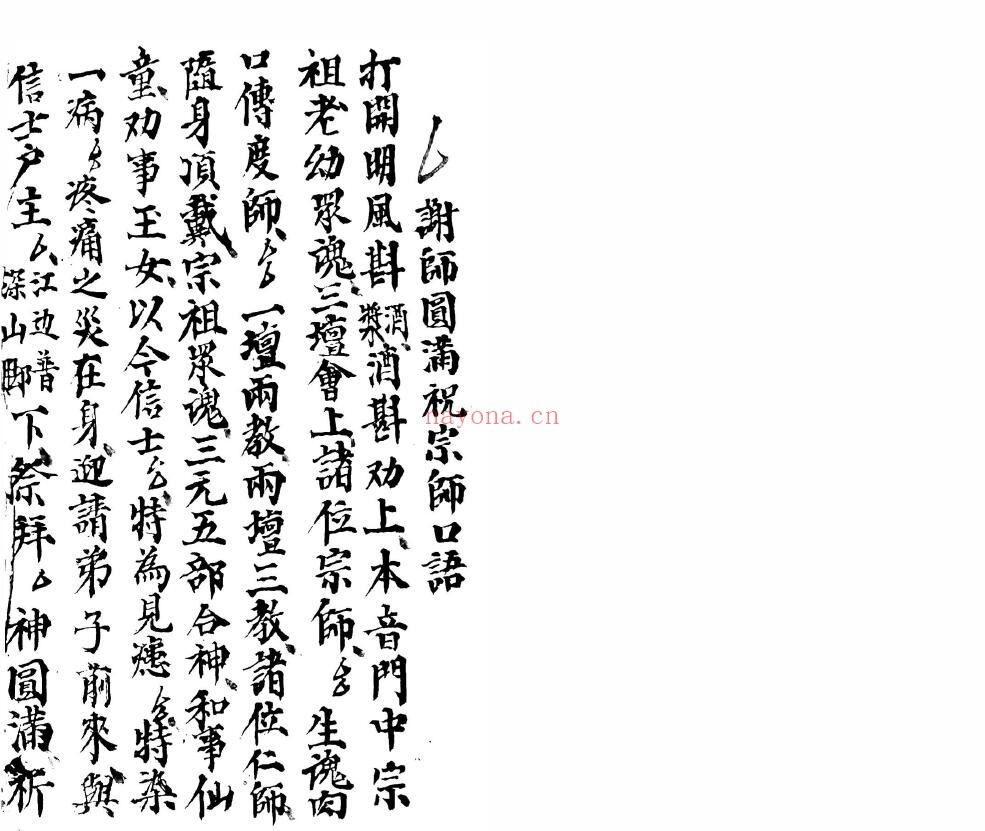 謝師圓滿祝宗師口語
打開明風斟酒漿酒斟劝上本音門中宗
祖老幼眾魂三壇會上諸位宗師厶生魂肉
口傳度師厶一壇兩教兩壇三教諸位仁師
隨身頂戴宗祖眾魂三元五部合神和事仙
童劝事玉女以今信士厶特為見患厶特染
一病厶疼痛之災在身迎請弟子前來與
信士户主厶江边普深山腳下祭拜厶神圓滿祈
nayona.cn